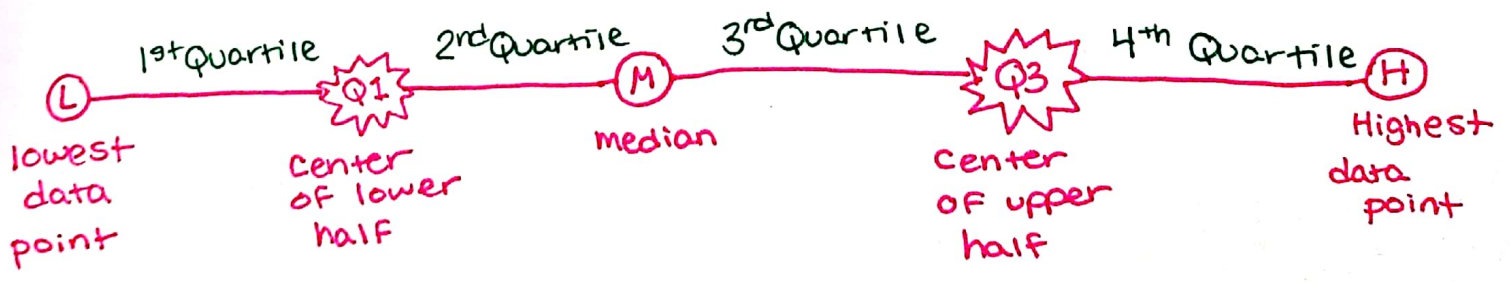 1st Quartile
2nd Quartile
3rd Quartile
4th Quartile
L
Q1
M
Q3
H
lowest
data
point
center
of lower
half
median
center
of upper
half
Highest
data
point